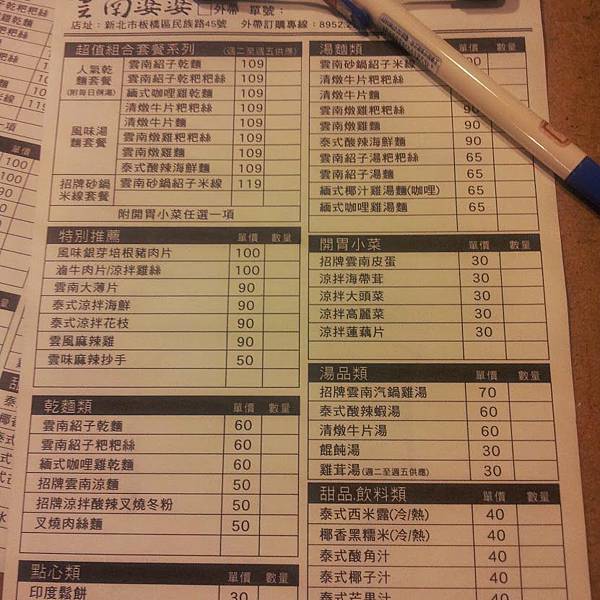 雲南婆婆 □外帶 單號：
店址：新北市板橋區民族路45號 外帶訂購專線：8952
超值組合套餐系列 (週二至週五供應)
人氣乾麵套餐 (附每日例湯)
雲南紹子乾麵 109
雲南紹子乾粑粑絲 109
緬式咖哩雞乾麵 109
風味湯麵套餐
清燉牛片粑粑絲 109
清燉牛片麵 109
雲南燉雞粑粑絲 109
雲南燉雞麵 109
泰式酸辣海鮮麵 109
招牌砂鍋米線套餐
雲南砂鍋紹子米線 119
附開胃小菜任選一項
特別推薦 單價 數量
風味銀芽培根豬肉片 100
滷牛肉片/涼拌雞絲 100
雲南大薄片 90
泰式涼拌海鮮 90
泰式涼拌花枝 90
雲風麻辣雞 90
雲味麻辣抄手 50
乾麵類 單價 數量
雲南紹子乾麵 60
雲南紹子粑粑絲 60
緬式咖哩雞乾麵 60
招牌雲南涼麵 50
招牌涼拌酸辣叉燒冬粉 50
叉燒肉絲麵 50
點心類 單價 數量
印度鬆餅 30
湯麵類 單價 數量
雲南砂鍋紹子米線
清燉牛片粑粑絲
清燉牛片麵
雲南燉雞粑粑絲 90
雲南燉雞麵 90
泰式酸辣海鮮麵 90
雲南紹子湯粑粑絲 65
雲南紹子湯麵 65
緬式椰汁雞湯麵(咖哩) 65
緬式咖哩雞湯麵 65
開胃小菜 單價 數量
招牌雲南皮蛋 30
涼拌海帶茸 30
涼拌大頭菜 30
涼拌高麗菜 30
涼拌蓮藕片 30
湯品類 單價 數量
招牌雲南汽鍋雞湯 70
泰式酸辣蝦湯 60
清燉牛片湯 60
餛飩湯 30
雞茸湯(週二至週五供應) 30
甜品.飲料類 單價 數量
泰式西米露(冷/熱) 40
椰香黑糯米(冷/熱) 40
泰式酸角汁 40
泰式椰子汁 40
泰式芒果汁 40